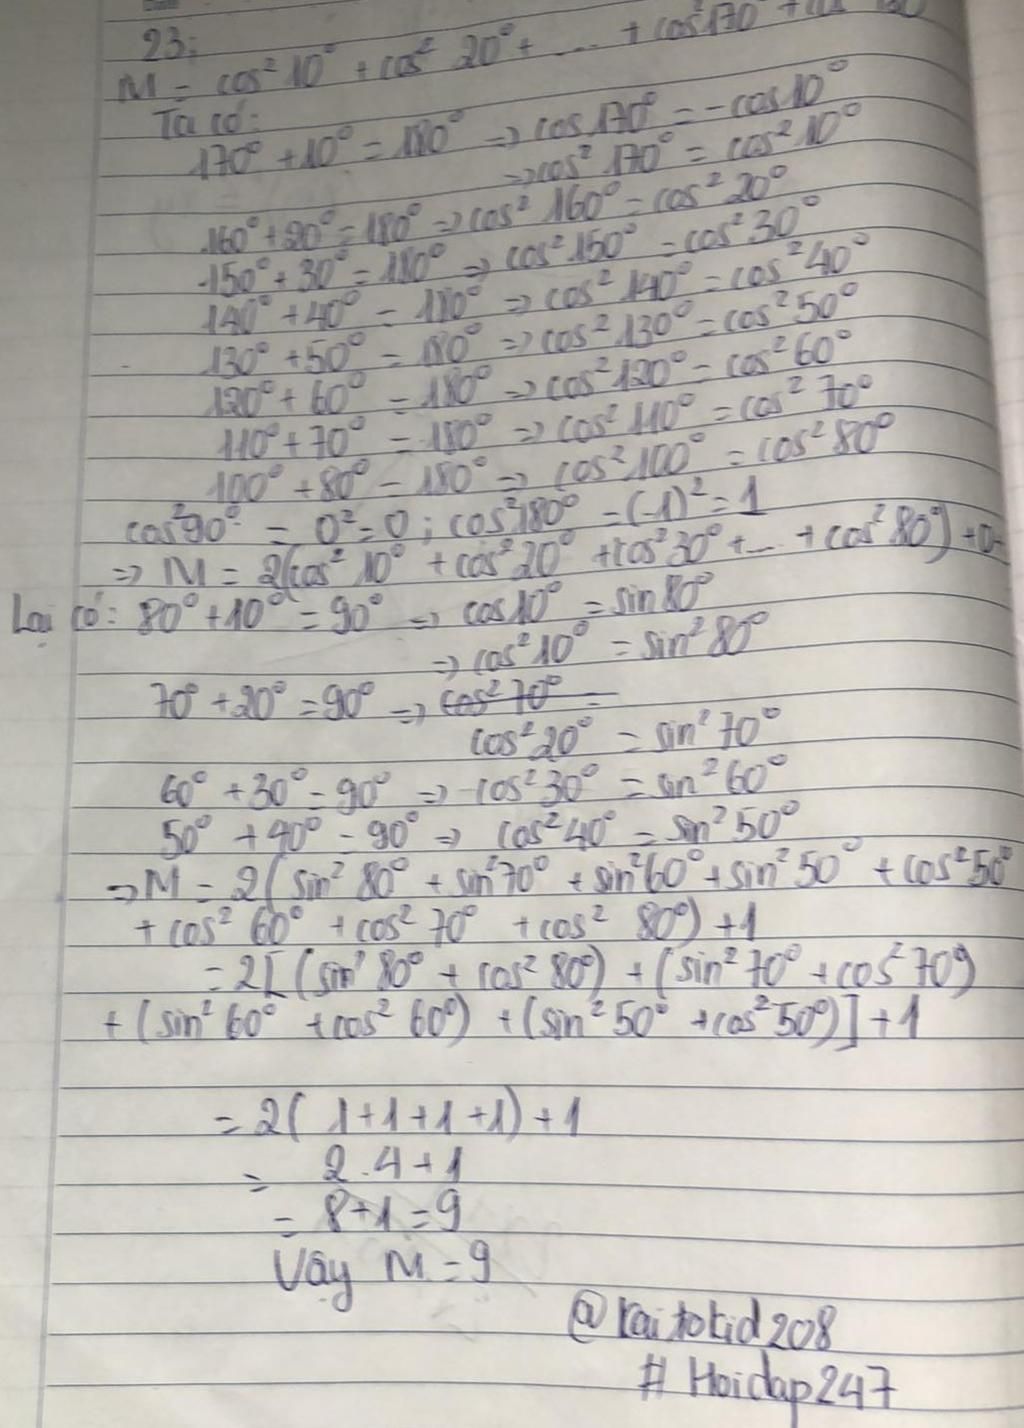 23:
M = cos² 10° + cos² 20° + ... + cos² 170° + cos² 180°
Ta có:
170° + 10° = 180° ⇒ cos 170° = -cos 10°
⇒ cos² 170° = cos² 10°
160° + 20° = 180° ⇒ cos² 160° = cos² 20°
150° + 30° = 180° ⇒ cos² 150° = cos² 30°
140° + 40° = 180° ⇒ cos² 140° = cos² 40°
130° + 50° = 180° ⇒ cos² 130° = cos² 50°
120° + 60° = 180° ⇒ cos² 120° = cos² 60°
110° + 70° = 180° ⇒ cos² 110° = cos² 70°
100° + 80° = 180° ⇒ cos² 100° = cos² 80°
cos² 90° = 0² = 0 ; cos² 180° = (-1)² = 1
⇒ M = 2(cos² 10° + cos² 20° + cos² 30° + ... + cos² 80°) + 0
Lại có: 80° + 10° = 90° ⇒ cos 10° = sin 80°
⇒ cos² 10° = sin² 80°
70° + 20° = 90° ⇒ cos² 70° =
cos² 20° = sin² 70°
60° + 30° = 90° ⇒ cos² 30° = sin² 60°
50° + 40° = 90° ⇒ cos² 40° = sin² 50°
⇒ M = 2(sin² 80° + sin² 70° + sin² 60° + sin² 50° + cos² 50°
+ cos² 60° + cos² 70° + cos² 80°) + 1
= 2[(sin² 80° + cos² 80°) + (sin² 70° + cos² 70°)
+ (sin² 60° + cos² 60°) + (sin² 50° + cos² 50°)] + 1
= 2(1+1+1+1) + 1
= 2.4 + 1
= 8 + 1 = 9
Vậy M = 9
@kaitokid208
# Hoidap247